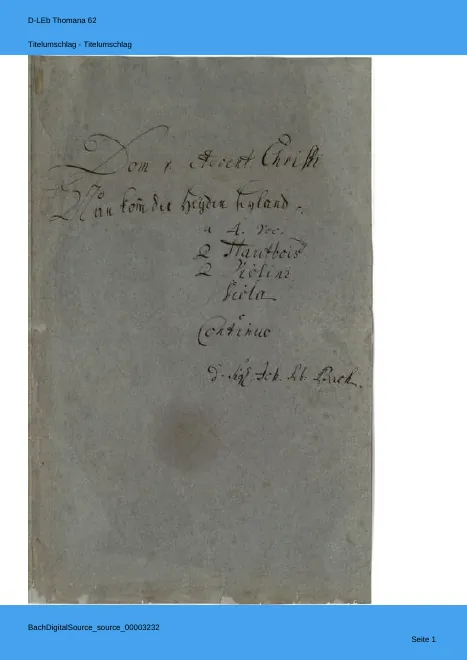 D-LEb Thomana 62
Titelumschlag - Titelumschlag
Dom 1. Advent Christi
Nun kom̅ der Heyden Heyland.
a 4. Voc.
2 Hautbois
2 Violini
Viola
Continuo
di Joh. Seb. Bach.
BachDigitalSource_source_00003232
Seite 1